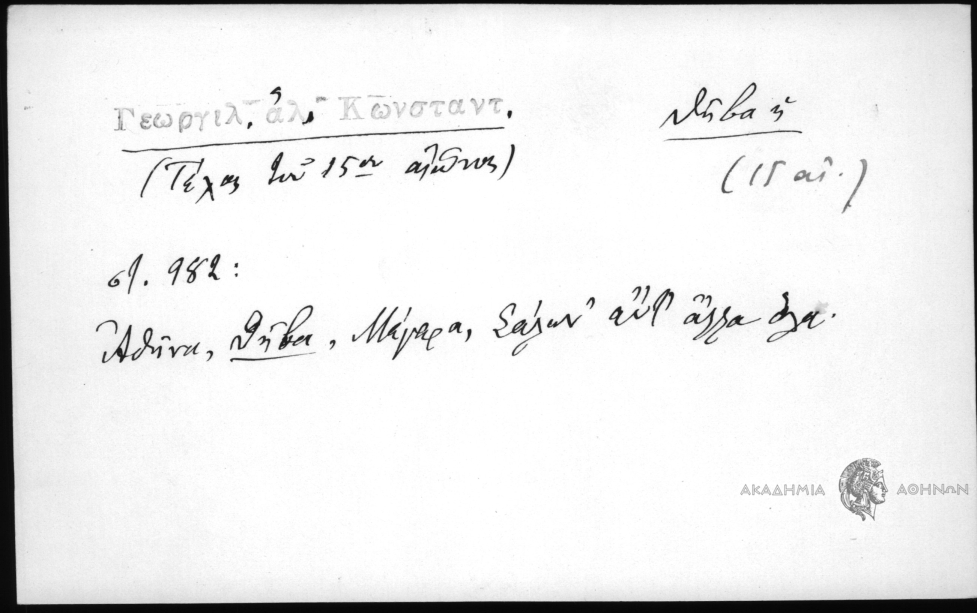 Γεωργιλ. ἁλ. Κωνσταντ.
Θῆβα ἡ
(Τέλος τοῦ 15ου αἰῶνος)
(15 αἰ.)
στ. 982:
Ἀθήνα, Θῆβα, Μέγαρα, ἄλλα ὅλα.
ΑΚΑΔΗΜΙΑ ΑΘΗΝΩΝ